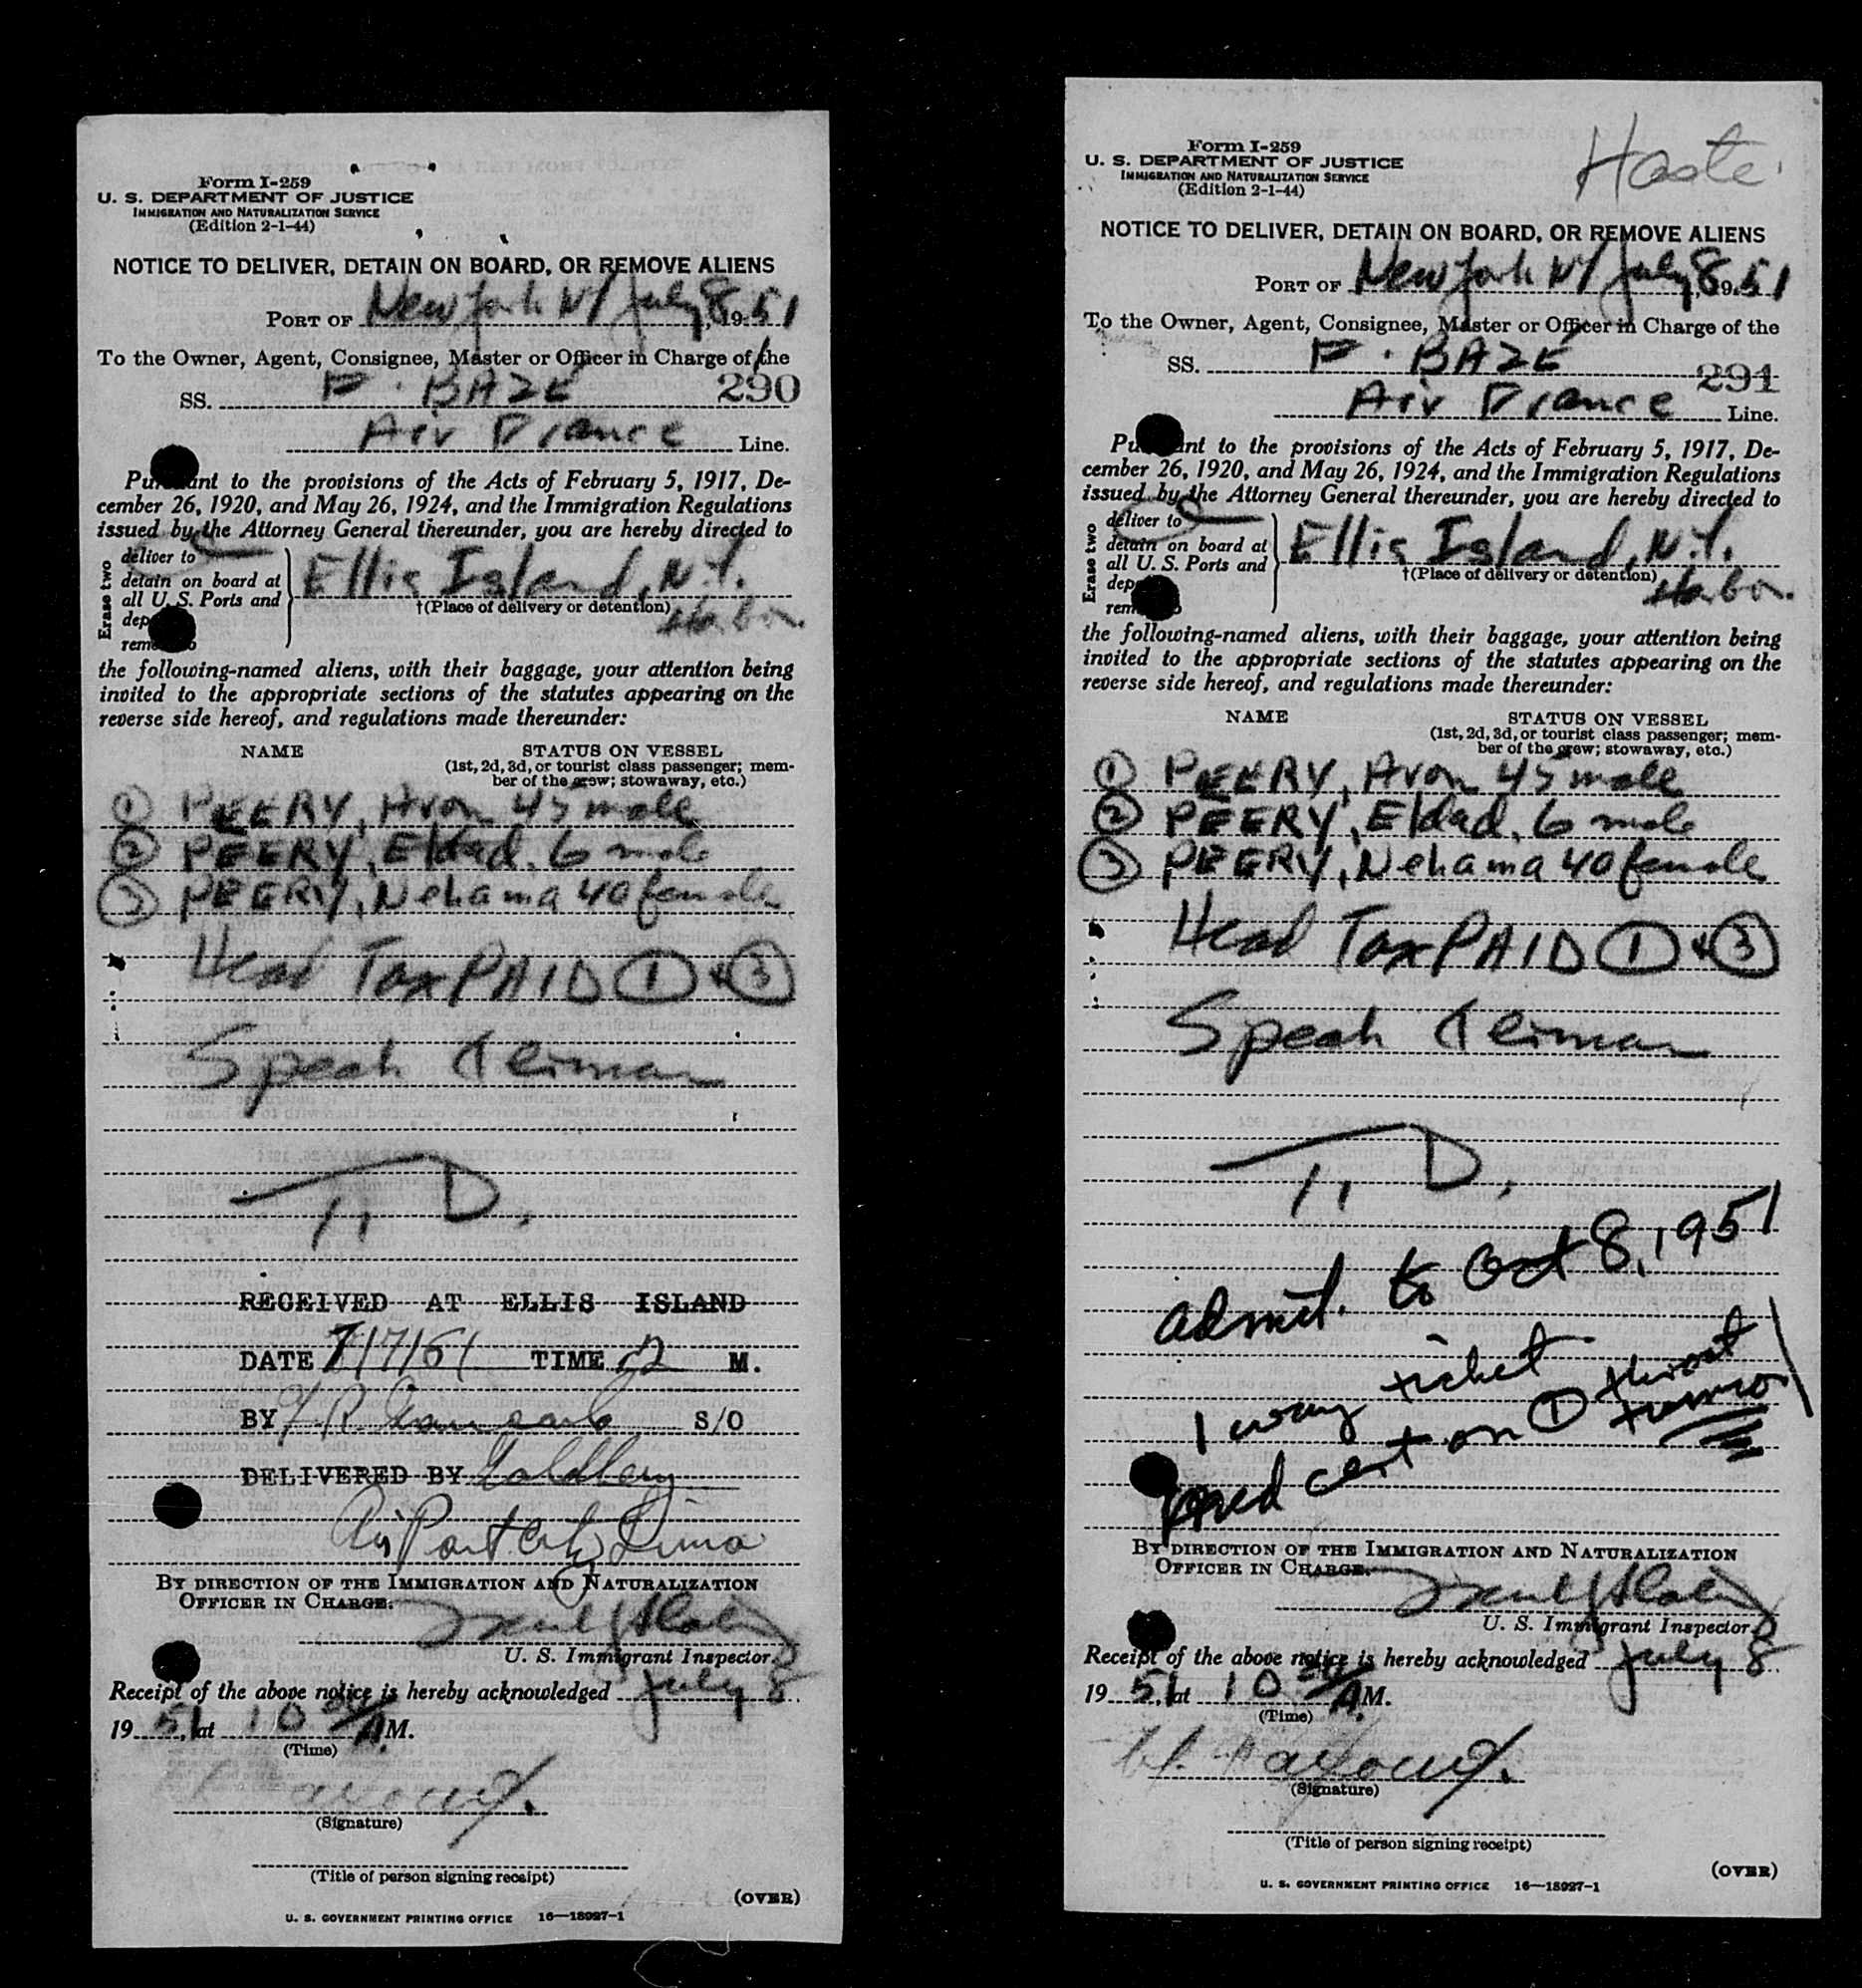 Form I-259
U. S. DEPARTMENT OF JUSTICE
IMMIGRATION AND NATURALIZATION SERVICE
(Edition 2-1-44)
NOTICE TO DELIVER, DETAIN ON BOARD, OR REMOVE ALIENS
PORT OF New York NY July 8, 1951
To the Owner, Agent, Consignee, Master or Officer in Charge of the
SS. F. BAZE 290
Air France Line.
Pursuant to the provisions of the Acts of February 5, 1917, De-
cember 26, 1920, and May 26, 1924, and the Immigration Regulations
issued by the Attorney General thereunder, you are hereby directed to
Erase two
deliver to
detain on board at
all U. S. Ports and
dep
remo
Ellis Island, N.Y.
†(Place of delivery or detention)
Harbor.
the following-named aliens, with their baggage, your attention being
invited to the appropriate sections of the statutes appearing on the
reverse side hereof, and regulations made thereunder:
NAME STATUS ON VESSEL
(1st, 2d, 3d, or tourist class passenger; mem-
ber of the crew; stowaway, etc.)
① PEERY, Aron 45 male
② PEERY, Eldad, 6 male
③ PEERY, Nehama 40 female
Head Tax PAID ① + ③
Speak German
T. D.
RECEIVED AT ELLIS ISLAND
DATE 7/7/51 TIME M.
BY S/O
DELIVERED BY Goldberg
Air Port Limo
BY DIRECTION OF THE IMMIGRATION AND NATURALIZATION
OFFICER IN CHARGE.
U. S. Immigrant Inspector.
Receipt of the above notice is hereby acknowledged July 8
1951, at 10 A M.
(Time)
(Signature)
(Title of person signing receipt)
(OVER)
U. S. GOVERNMENT PRINTING OFFICE 16—18927-1
Form I-259
U. S. DEPARTMENT OF JUSTICE
IMMIGRATION AND NATURALIZATION SERVICE
(Edition 2-1-44)
NOTICE TO DELIVER, DETAIN ON BOARD, OR REMOVE ALIENS
PORT OF New York NY July 8, 1951
To the Owner, Agent, Consignee, Master or Officer in Charge of the
SS. F. BAZE 291
Air France Line.
Pursuant to the provisions of the Acts of February 5, 1917, De-
cember 26, 1920, and May 26, 1924, and the Immigration Regulations
issued by the Attorney General thereunder, you are hereby directed to
Erase two
deliver to
detain on board at
all U. S. Ports and
dep
rem
Ellis Island, N.Y.
†(Place of delivery or detention)
Harbor.
the following-named aliens, with their baggage, your attention being
invited to the appropriate sections of the statutes appearing on the
reverse side hereof, and regulations made thereunder:
NAME STATUS ON VESSEL
(1st, 2d, 3d, or tourist class passenger; mem-
ber of the crew; stowaway, etc.)
① PEERY, Aron 45 male
② PEERY, Eldad, 6 male
③ PEERY, Nehama 40 female
Head Tax PAID ① + ③
Speak German
T. D.
admit. to Oct 8, 1951
1 way ticket
med cert on ① throat
tumor
BY DIRECTION OF THE IMMIGRATION AND NATURALIZATION
OFFICER IN CHARGE.
U. S. Immigrant Inspector.
Receipt of the above notice is hereby acknowledged July 8
1951, at 10 A M.
(Time)
(Signature)
(Title of person signing receipt)
(OVER)
U. S. GOVERNMENT PRINTING OFFICE 16—18927-1